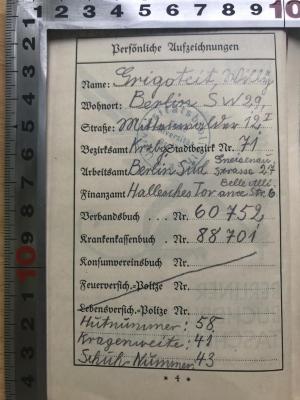 Persönliche Aufzeichnungen
Name: Grigoteit, Willy
Wohnort: Berlin SW 29,
Straße: Mittenwalder 12 I
Bezirksamt Krzbg Stadtbezirk Nr. 71
Arbeitsamt Berlin Süd Gneisenau-
strasse 27
Finanzamt Hallesches Tor Belle Alli-
ance Str. 6
Verbandsbuch . . . Nr. 60 752
Krankenkassenbuch . Nr. 88 701
Konsumvereinsbuch Nr.
Feuerversich.-Polize Nr.
Lebensversich.-Polize Nr.
Hutnummer: 58
Kragenweite: 41
Schuh-Nummer 43
* 4 *
1 2 3 4 5 6 7 8 9 10